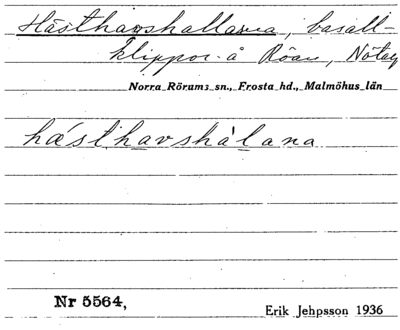 Hästhavshallarna, basalt-
klippor å Röan, Nötag
Norra Rörums sn., Frosta hd., Malmöhus län
hǽsthavshàlana
Nr 5564,
Erik Jehpsson 1936